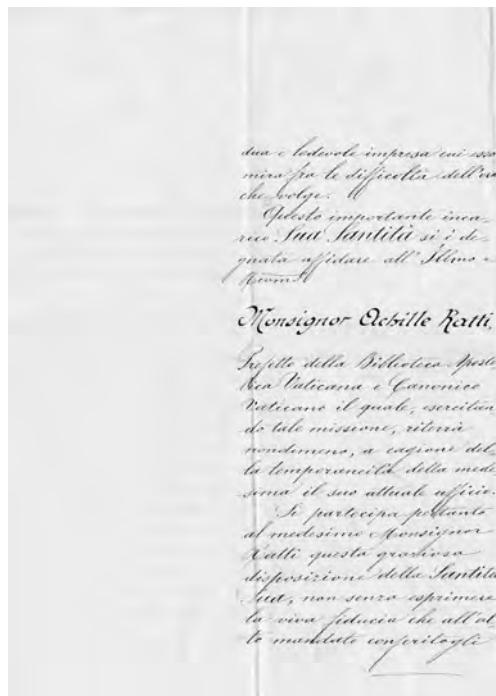 dua e lodevole impresa cui essa
mira fra le difficoltà dell'ora
che volge.
Questo importante inca-
rico Sua Santità si è de-
gnata affidare all'Illmo e
Revmo
Monsignor Achille Ratti,
Prefetto della Biblioteca Aposto-
lica Vaticana e Canonico
Vaticano il quale, esercitan
do tale missione, riterrà
nondimeno, a cagione del-
la temporaneità della mede-
sima il suo attuale ufficio.
Si partecipa pertanto
al medesimo Monsignor
Ratti questa graziosa
disposizione della Santità
Sua, non senza esprimere
la viva fiducia che all'al-
to mandato conferitogli